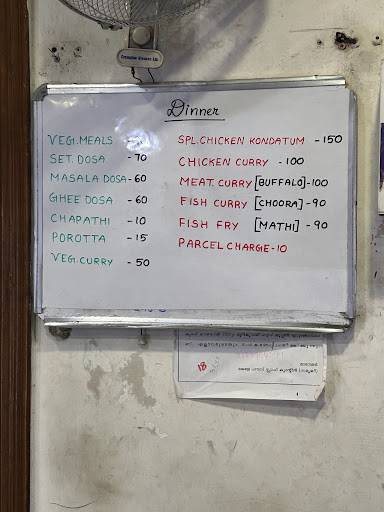 Dinner
VEG.MEALS -
SET. DOSA - 70
MASALA DOSA - 60
GHEE DOSA - 60
CHAPATHI - 10
POROTTA - 15
VEG.CURRY - 50
SPL.CHICKEN KONDATUM - 150
CHICKEN CURRY - 100
MEAT. CURRY [BUFFALO] - 100
FISH CURRY [CHOORA] - 90
FISH FRY [MATHI] - 90
PARCEL CHARGE - 10